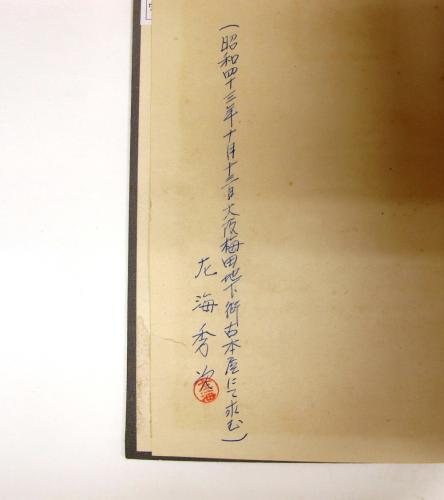 (昭和四十三年十月十三日大阪梅田地下街古本屋にて求む)
左海秀次